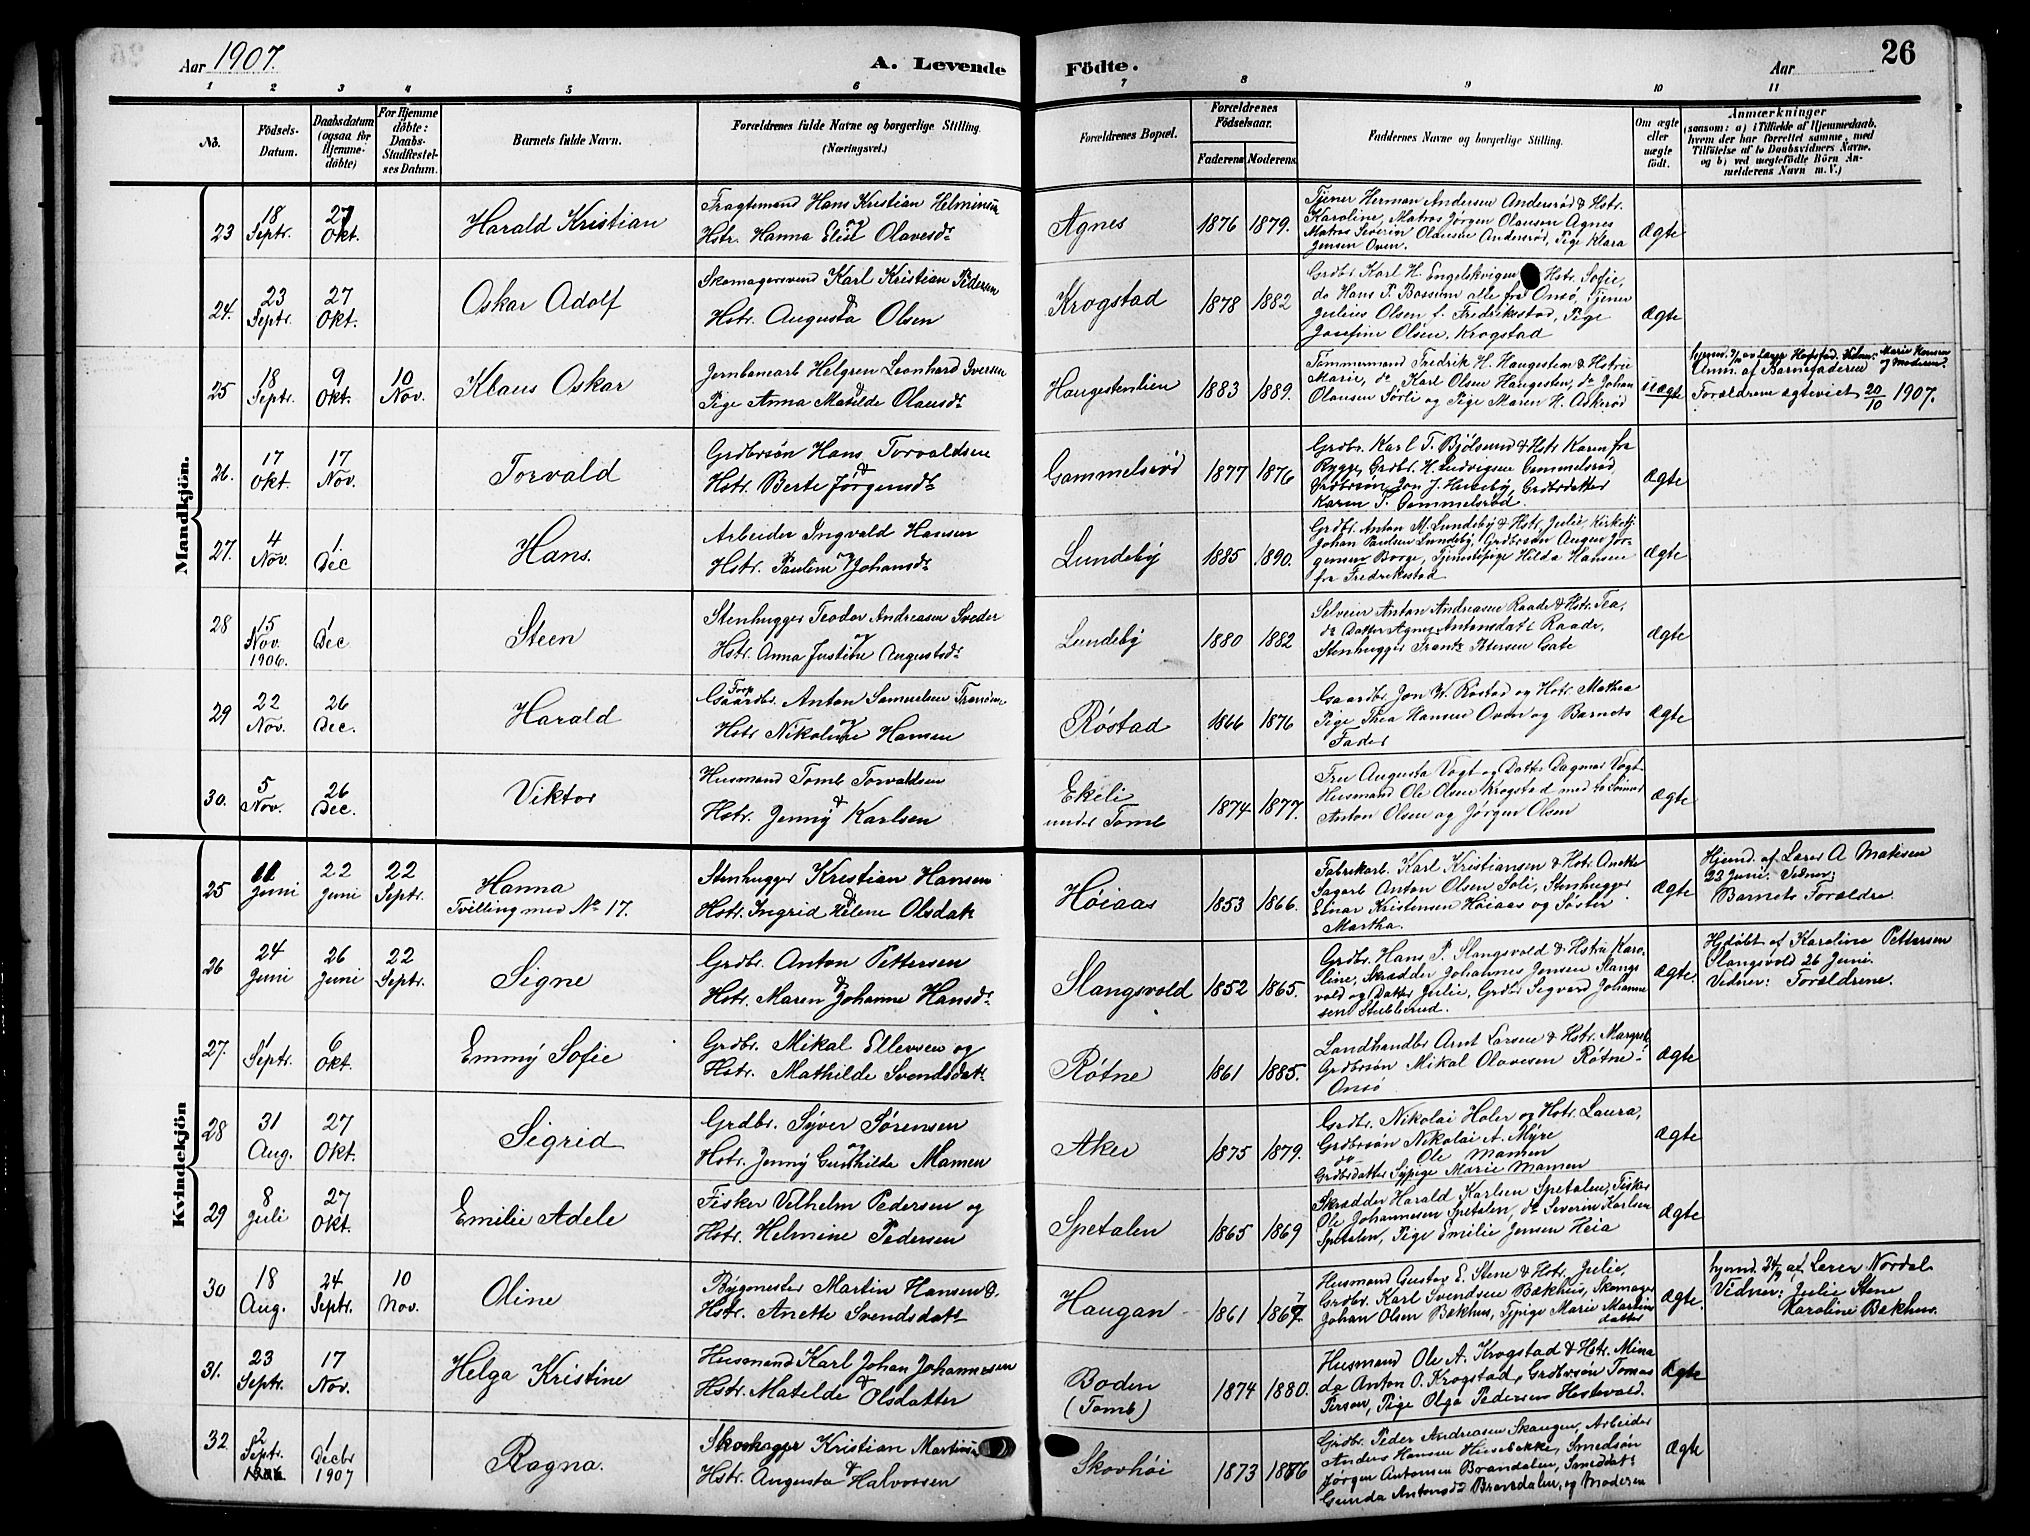 Aar 1907.
A. Levende
Födte.
Aar
26
1 2 3 4 5 6 7 8 9 10 11
No.
Födsels-Datum.
Daabsdatum (ogsaa for Hjemmedöbte)
For Hjemmedöbte: Daabs-Stadfestelses Datum.
Barnets fulde Navn.
Forældrenes fulde Navne og borgerlige Stilling. (Næringsvei.)
Forældrenes Bopæl.
Forældrenes Födselsaar.
Faderens Moderens
Faddernes Navne og borgerlige Stilling.
Om ægte eller uægte födt.
Anmærkninger
(saasom: a) i Tilfælde af Hjemmedaab, hvem der har forrettet samme, med Tilföielse af to Daabsvidners Navne, og b) ved uægtefödte Börn Anmelderens Navn m. V.)
Mandkjön.
23 18 Septr. 27 Okt. Harald Kristian
Fragtemand Hans Kristian
Hstr. Hanna Elise Olavesdr
Agnes 1876 1879.
Tjener Herman Andersen Andersrød & Hstr.
Karoline, Matros Jørgen Olausen Agnes
Matros Severin Olausen Andersrød, Pige Klara
Jensen Oven.
Ægte
24. 23 Septr. 27 Okt. Oskar Adolf
Skomagersvend Karl Kristian Pedersen
& Hstr. Augusta Olsen
Krogstad 1878 1882
Grdbr. Karl H. Hstr. Sofie,
do Hans P. Bossum alle fra Onsø, Tjener
Julius Olsen f. Fredrikstad, Pige
Josefine Olsen, Krogstad
Ægte
25 18 Septr. 9 Okt. 10 Nov. Klaus Oskar
Jernbanearb Helgren Leonhard Iversen
& Pige Anna Matilde Olausdr
Haugestenlien 1883 1889.
Tømmermand Fredrik H. Haugesten & Hstru
Marie, do Karl Olsen Haugesten, do Johan
Olausen Sørli og Pige Maren H. Askerød
uægte
Anm. af Barnefaderen og Moderen.
Forældrene ægteviet 20/10 1907.
26. 17 Okt. 17 Nov. Torvald
Grdbrsøn Hans Torvaldsen
& Hstr. Berte Jørgensdr
Gammelsrød 1877 1876
Grdbr. Karl T. Bjølsund & Hstr Karen fra
Rygge, Grdbr. H. Ludvigsen Gammelsrød,
Grdbrsøn Jon J. Huseby, Grdbrdatter
Karen T. Gammelsrød.
Ægte
27. 4 Nov. 1 Dec Hans.
Arbeider Ingvald Hansen
og Hstr. Pauline Johansdr
Lundeby 1885 1890.
Grdbr. Anton M. Lundeby & Hstr, Julie, Kirketj.
Johan Paulsen Lundeby, Grdbrsøn August Jørgensen
Borge, Tjenestepige Hilda Hansen
fra Fredriksstad
Ægte
28 15 Nov. 1906. 1 Dec Steen
Stenhugger Teodor Andreasen Sveder
og Hstr. Anna Justine Augustsdr
Lundeby 1880 1882
Selveier Anton Andreasen Raade & Hstr. Tea,
do Datter Agnes Antonsdatr Raade,
Stenhugger Frantz Petersen Gate
Ægte
29 22 Nov. 26 Dec. Harald
Forp Gaardbr. Anton Samuelsen
og Hstr Nikoline Hansen
Røstad 1866 1876
Gaardbr. Jon W. Røstad og Hstr. Mathea
Pige Thea Hansen Oven og Barnets
Fader
Ægte
30. 5 Nov. 26 Dec. Viktor
Husmand Tomb Torvaldsen
& Hstr. Jenny Karlsen
Ekeli under Tomb 1874 1877.
Fru Augusta Vogt og Datter Dagmar Vogt
Husmand Ole Olsen Krogstad med to Sønner
Anton Olsen og Jørgen Olsen
Ægte
Kvindekjön
25 11 Juni 22 Juni 22 Septr. Hanna
Tvilling med No 17.
Stenhugger Kristian Hansen
& Hstr. Ingrid Helene Olsdatr
Høiaas 1853 1866.
Fabrikarb. Karl Kristiansen & Hstr. Anette
Sagarb Anton Olsen Soli, Stenhugger
Einar Kristensen Høiaas og Søster
Martha.
Ægte
Hjmd. af Lærer A Matisen
23 Juni. Vidner:
Barnets Forældre.
26 24 Juni 26 Juni 22 Septr. Signe
Grdbr. Anton Pettersen
& Hstr. Maren Johanne Hansdr
Slangsvold 1852 1865.
Grdbr. Hans P. Slangsvold & Hstru Karoline,
Skrædder Johannes Jensen Slangsvold
og Datter Julie, Grdbr Sigvard Johannesen
Stubberud.
Ægte
Hjdøbt af Karoline Pettersen
Slangsvold 26 Juni.
Vidner: Forældrene.
27. 1 Septr. 6 Okt. Emmy Sofie
Grdbr. Mikal Ellevsen og
Hstr. Mathilde Svendsdatr
Røtne 1861 1885.
Landhandlr Arnt Larsen & Hstr. Margret
Grdbrsøn Mikal Olavesen Røtne
Onsø
Ægte
28 31 Aug. 27 Okt. Sigrid
Grdbr. Syver Sørensen
og Hstr. Jenny Gunhilde Mamen
Aker 1875 1879.
Grdbr. Nikolai Holer og Hstr. Laura,
Grdbrsøn Nikolai A. Myre
do Ole Mamen
Grdbrdatter Sypige Marie Mamen
Ægte
29 8 Juli 27 Okt. Emilie Adele
Fisker Vilhelm Pedersen og
Hstr. Helmine Pedersen
Spetalen 1865 1869
Skrædder Harald Karlsen Spetalen, Fisker
Ole Johannesen Spetalen, do Severin Karlsen
Spetalen, Pige Emilie Jensen Heia
Ægte
30 18 Aug. 24 Septr. 10 Nov. Oline
Bygmester Martin Hansen &
Hstr. Anette Svendsdatr
Haugan 1861 1867
Husmand Gustav E. Stene & Hstr. Julie,
Grdbr. Karl Svendsen Bækhus, Skomager
Johan Olsen Bækhus, Typige Marie Martinsdatter
Ægte.
hjmd. 24/9 af Lærer Nordal
Vidner: Julie Stene
Karoline Bækhus.
31. 23 Septr. 17 Nov. Helga Kristine
Husmand Karl Johan Johannesen
& Hstr. Matilde Olsdatter
Boden (Tomb) 1874 1880.
Husmand Ole A. Krogstad & Hstr. Mina
do Anton O. Krogstad, Grdbrsøn Tomas
Person, Pige Olga Pedersen Hestevold.
Ægte
32. 2 Septr. 1 Decbr 1907 Ragna.
Kristian
& Hstr. Augusta Halvorsen
Skovhøi 1873 1876
Grdbr. Peder Andreasen Skaugen, Arbeider
Anders Hansen Husebække, Smedsøn
Jørgen Antonsen Brandalen, Smeddatr
Gunda Antonsd Brandalen, og Moderen
Ægte